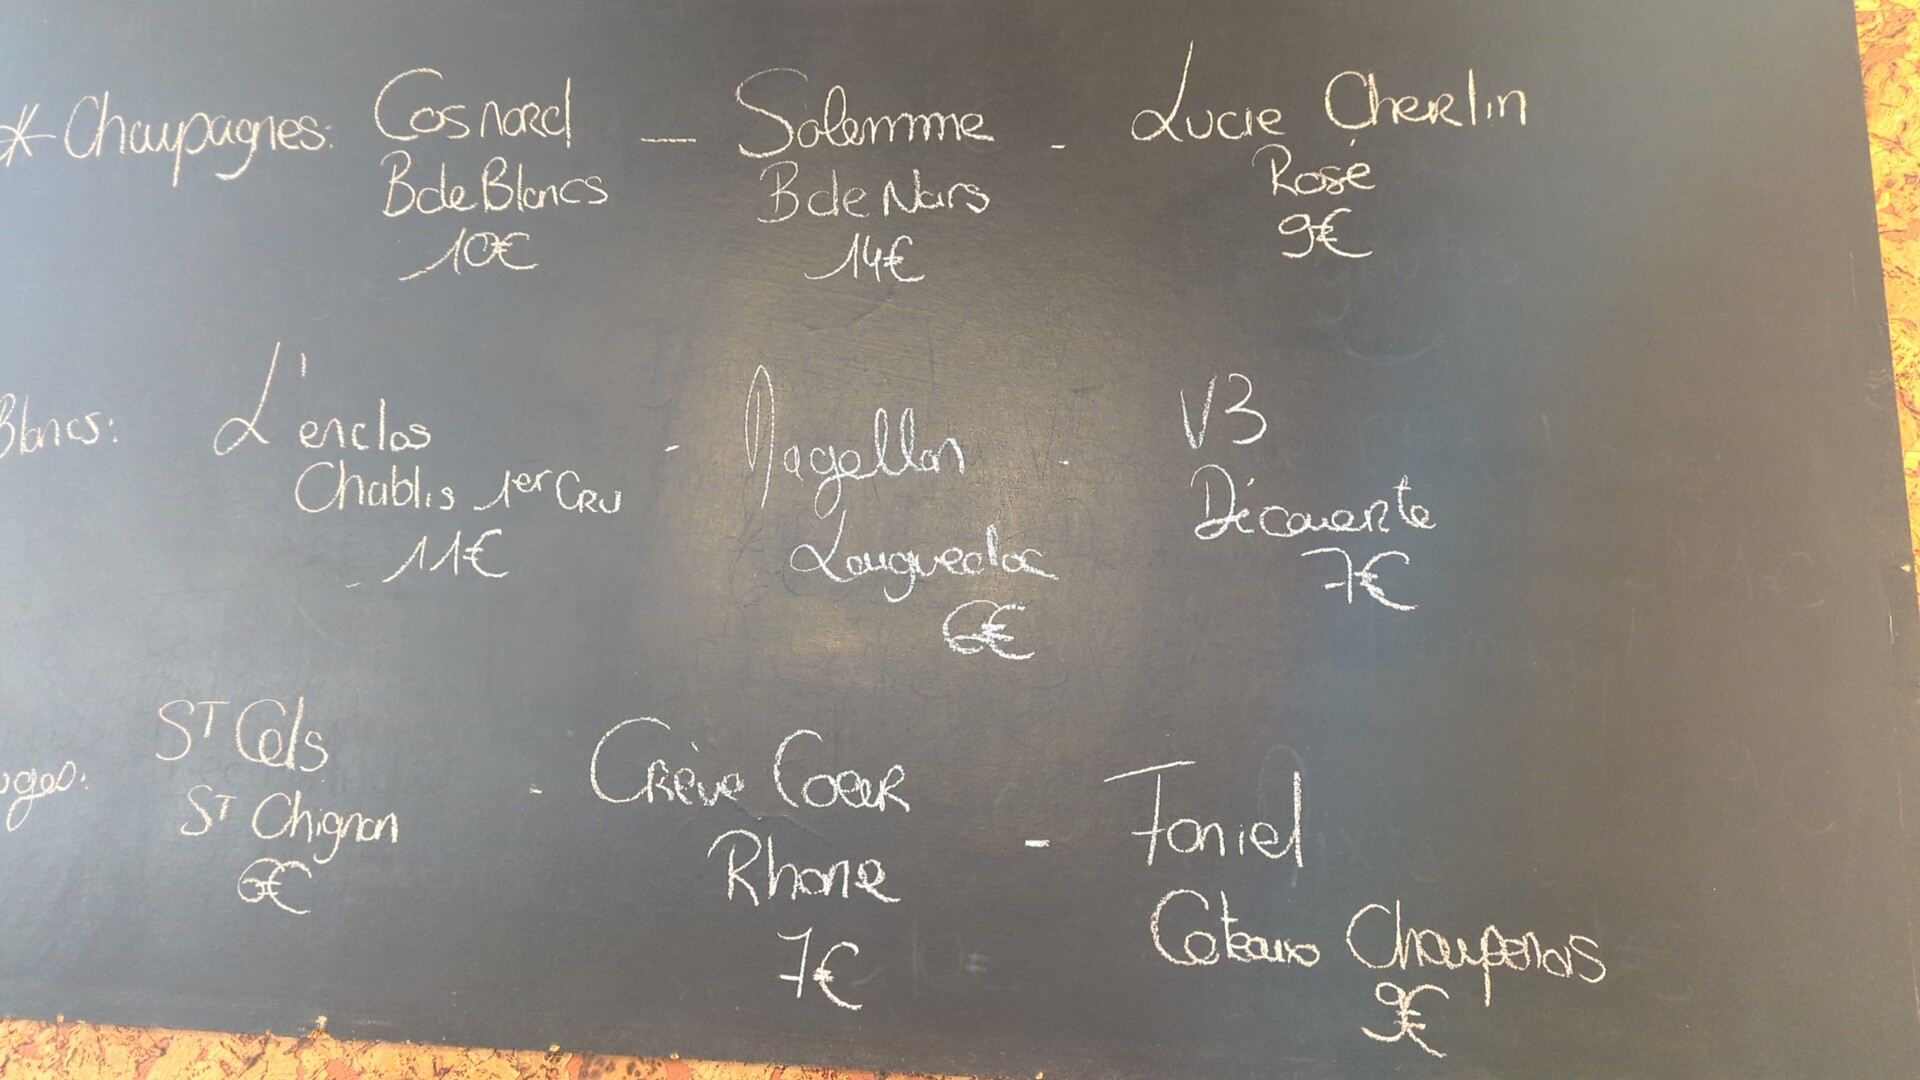 * Champagnes: Cosnard — Solemme - Lucie Cherlin
B de Blancs B de Noirs Rosé
10€ 14€ 9€
Blancs: L'enclos - Magellan - V3
Chablis 1er CRU Languedoc Découverte
11€ 6€ 7€
ST Cels - Crève Coeur - Foniel
ST Chignan Rhone Coteaux Champenois
6€ 7€ 9€